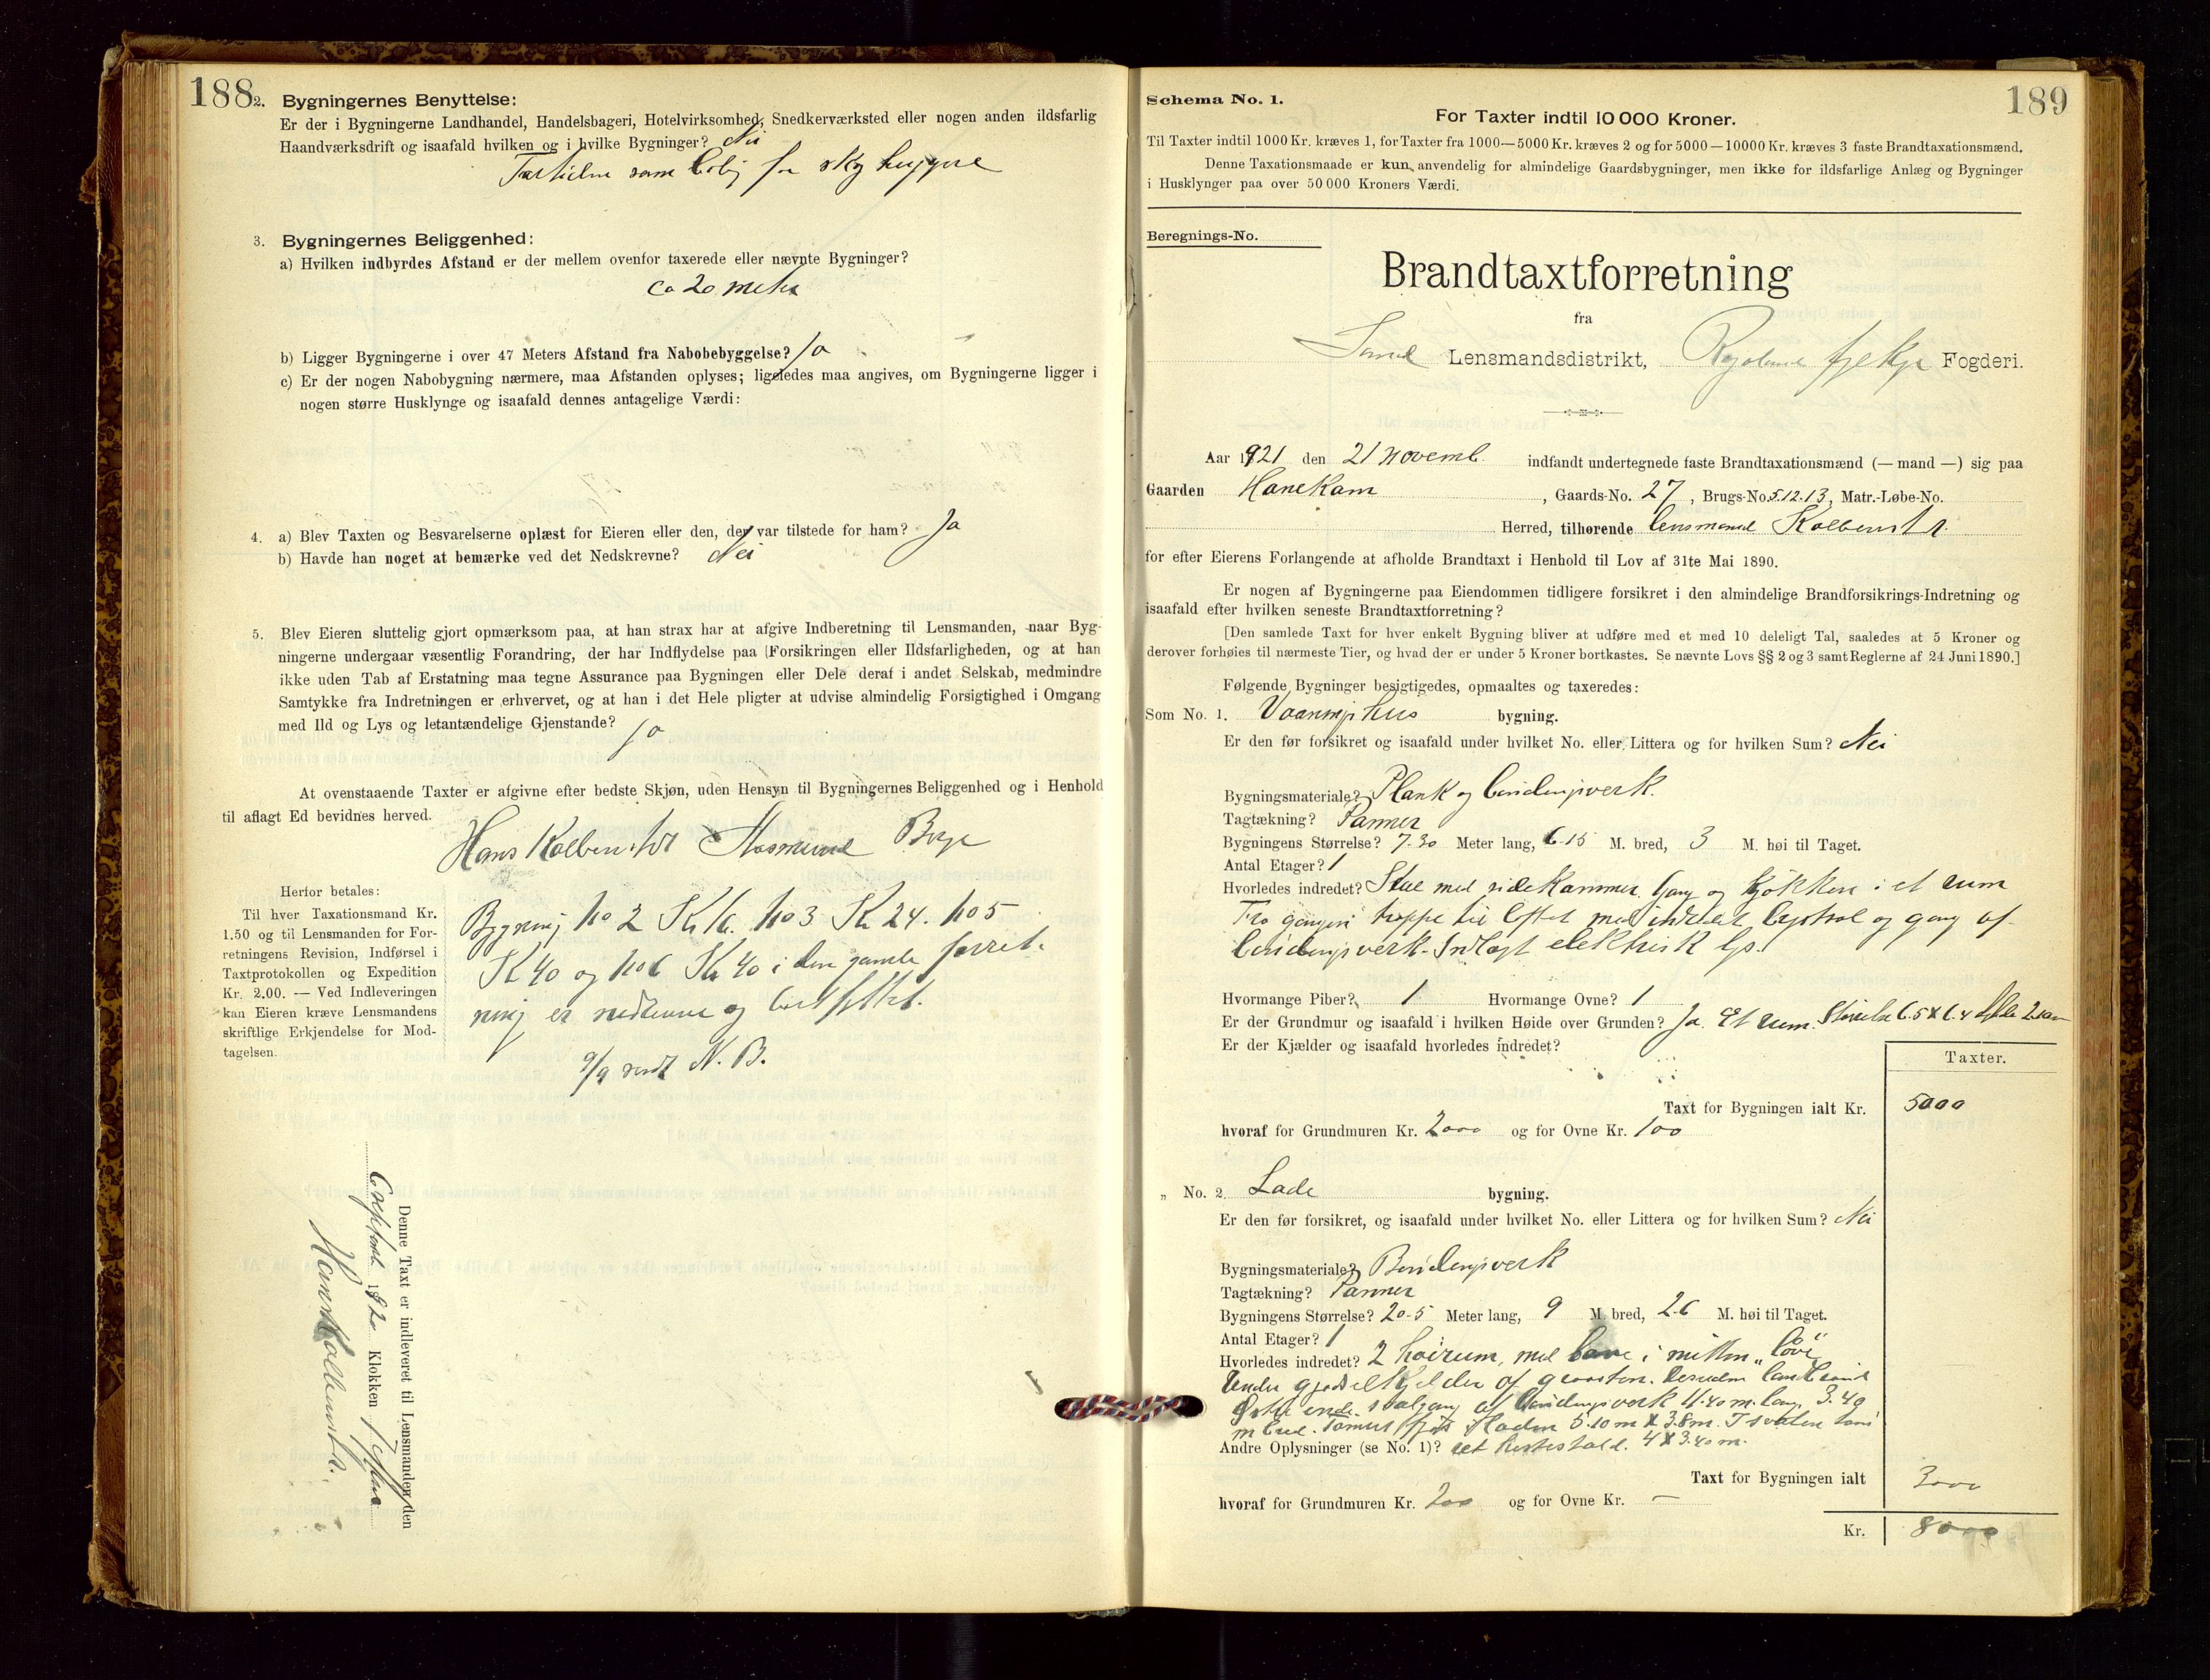 188
2. Bygningernes Benyttelse:
Er der i Bygningerne Landhandel, Handelsbageri, Hotelvirksomhed, Snedkerværksted eller nogen anden ildsfarlig
Haandværksdrift og isaafald hvilken og i hvilke Bygninger? Nei
som
3. Bygningernes Beliggenhed:
a) Hvilken indbyrdes Afstand er der mellem ovenfor taxerede eller nævnte Bygninger?
ca 20 meter
b) Ligger Bygningerne i over 47 Meters Afstand fra Nabobebyggelse? Ja
c) Er der nogen Nabobygning nærmere, maa Afstanden oplyses; ligeledes maa angives, om Bygningerne ligger i
nogen større Husklynge og isaafald dennes antagelige Værdi:
4. a) Blev Taxten og Besvarelserne oplæst for Eieren eller den, der var tilstede for ham? Ja
b) Havde han noget at bemærke ved det Nedskrevne? Nei
5. Blev Eieren sluttelig gjort opmærksom paa, at han strax har at afgive Indberetning til Lensmanden, naar Byg-
ningerne undergaar væsentlig Forandring, der har Indflydelse paa Forsikringen eller Ildsfarligheden, og at han
ikke uden Tab af Erstatning maa tegne Assurance paa Bygningen eller Dele deraf i andet Selskab, medmindre
Samtykke fra Indretningen er erhvervet, og at han i det Hele pligter at udvise almindelig Forsigtighed i Omgang
med Ild og Lys og letantændelige Gjenstande? Ja
At ovenstaaende Taxter er afgivne efter bedste Skjøn, uden Hensyn til Bygningernes Beliggenhed og i Henhold
til aflagt Ed bevidnes herved.
Hans Kolbenstvt Aasmund
Herfor betales:
Til hver Taxationsmand Kr.
1.50 og til Lensmanden for For-
retningens Revision, Indførsel i
Taxtprotokollen og Expedition
Kr. 2.00. — Ved Indleveringen
kan Eieren kræve Lensmandens
skriftlige Erkjendelse for Mod-
tagelsen.
Bygning No 2 No 3 Kr 24. No 5
Kr 40 og No 6 Kr 40 i den gamle forret-
ning er nedrevne og
9/9 sendt N. B.
Denne Taxt er indleveret til Lensmanden den
1920 Klokken 7
189
Schema No. 1.
For Taxter indtil 10 000 Kroner.
Til Taxter indtil 1000 Kr. kræves 1, for Taxter fra 1000—5000 Kr. kræves 2 og for 5000—10000 Kr. kræves 3 faste Brandtaxationsmænd.
Denne Taxationsmaade er kun anvendelig for almindelige Gaardsbygninger, men ikke for ildsfarlige Anlæg og Bygninger
i Husklynger paa over 50 000 Kroners Værdi.
Beregnings-No.
Brandtaxtforretning
fra
Sand Lensmandsdistrikt, Fogderi.
Aar 1921 den 21 novemb. indfandt undertegnede faste Brandtaxationsmænd (— mand —) sig paa
Gaarden Hanekam, Gaards-No. 27, Brugs-No. 5.12.13, Matr.-Løbe-No.
Herred, tilhørende lensmand
for efter Eierens Forlangende at afholde Brandtaxt i Henhold til Lov af 31te Mai 1890.
Er nogen af Bygningerne paa Eiendommen tidligere forsikret i den almindelige Brandforsikrings-Indretning og
isaafald efter hvilken seneste Brandtaxtforretning?
[Den samlede Taxt for hver enkelt Bygning bliver at udføre med et med 10 deleligt Tal, saaledes at 5 Kroner og
derover forhøies til nærmeste Tier, og hvad der er under 5 Kroner bortkastes. Se nævnte Lovs §§ 2 og 3 samt Reglerne af 24 Juni 1890.]
Følgende Bygninger besigtigedes, opmaaltes og taxeredes:
Som No. 1. Vaaningshus bygning.
Er den før forsikret og isaafald under hvilket No. eller Littera og for hvilken Sum? Nei
Bygningsmateriale? Plank og bindingsverk.
Tagtækning? Panner
Bygningens Størrelse? 7.30 Meter lang, 6.15 M. bred, 3 M. høi til Taget.
Antal Etager? 1
Hvorledes indredet? Stue med sidekammer. Gang og kjøkken i et rum
Fra gangen trappe til loftet med og gang af
bindingsverk. Indlagt elektrisk lys.
Hvormange Piber? 1 Hvormange Ovne? 1
Er der Grundmur og isaafald i hvilken Høide over Grunden? Ja. Et rum. Størrelse 6.5 X 6.4
Er der Kjælder og isaafald hvorledes indredet?
Taxter.
Taxt for Bygningen ialt Kr. 5000
hvoraf for Grundmuren Kr. 2000 og for Ovne Kr. 100
„ No. 2. Lade bygning.
Er den før forsikret, og isaafald under hvilket No. eller Littera og for hvilken Sum? Nei
Bygningsmateriale? Bindingsverk
Tagtækning? Panner
Bygningens Størrelse? 20.5 Meter lang, 9 M. bred, 2.6 M. høi til Taget.
Antal Etager? 1
Hvorledes indredet? 2 høirum, med i mitten „
Under gjødselkjelder af graasten. Desuden
svalgang af bindingsverk 11.40 m. lang, 3.40
m bred. 5.10 m X 3.8 m.
Andre Oplysninger (se No. 1)? hestestald. 4 X 3.40 m.
Taxt for Bygningen ialt 3000
hvoraf for Grundmuren Kr. 200 og for Ovne Kr. —
Kr. 8000